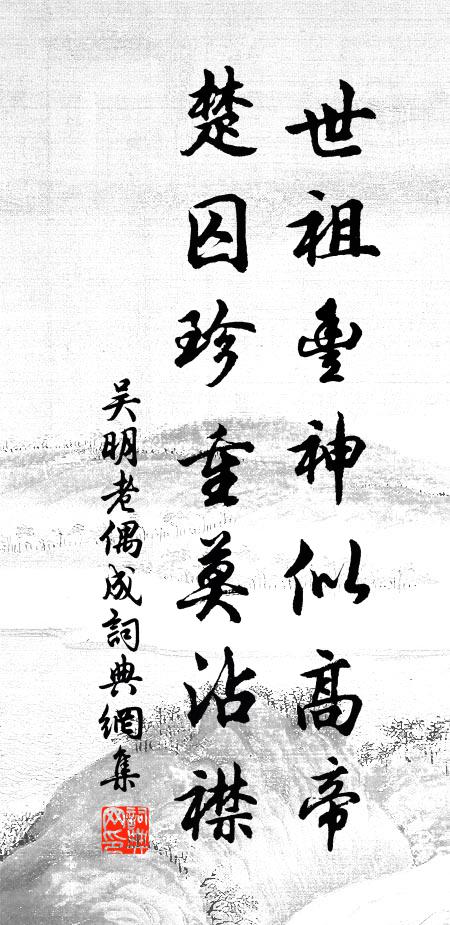 世祖豐神似高帝
楚囚珍重莫沾襟
吴明老偶成詞典網集